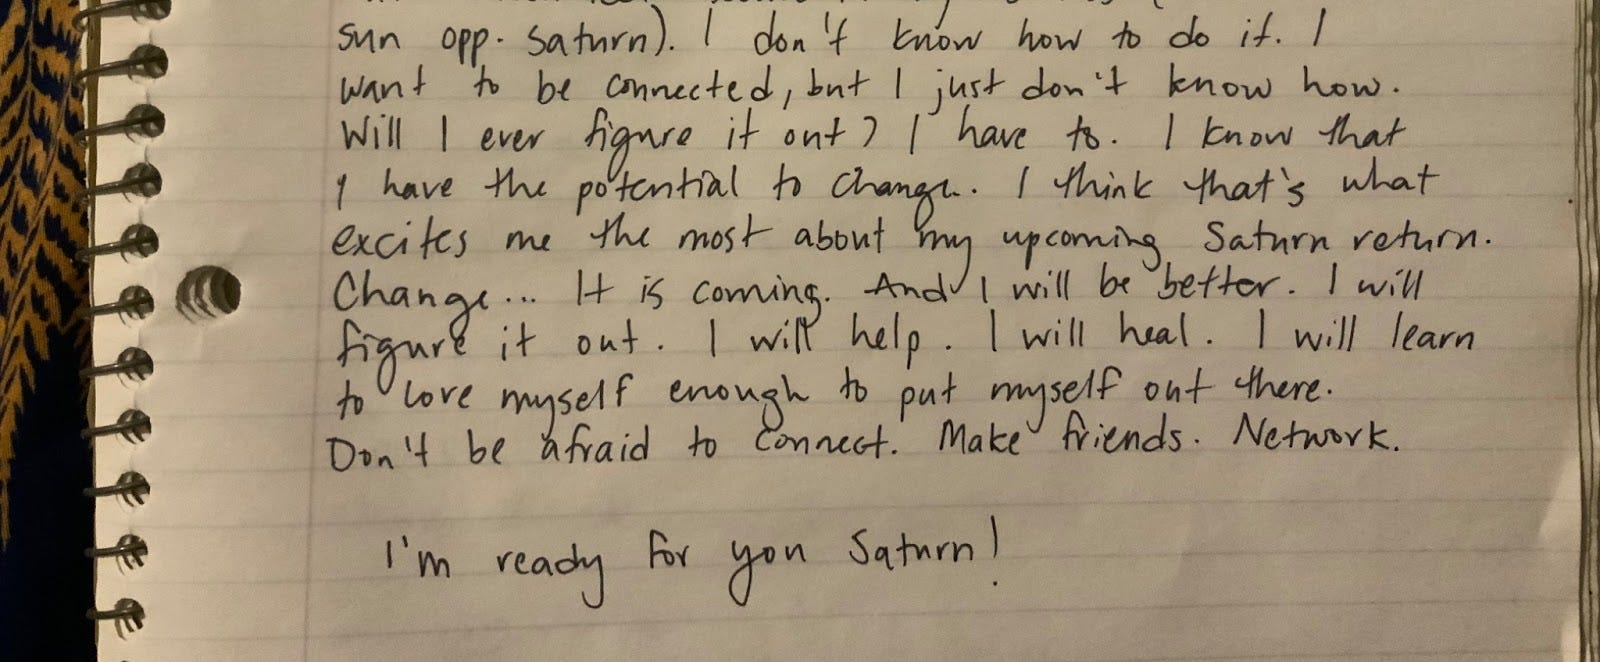 sun opp. saturn). I don't know how to do it. I
want to be connected, but I just don't know how.
Will I ever figure it out? I have to. I know that
I have the potential to change. I think that's what
excites me the most about my upcoming Saturn return.
Change... It is coming. And I will be better. I will
figure it out. I will help. I will heal. I will learn
to love myself enough to put myself out there.
Don't be afraid to connect. Make friends. Network.
I'm ready for you Saturn!